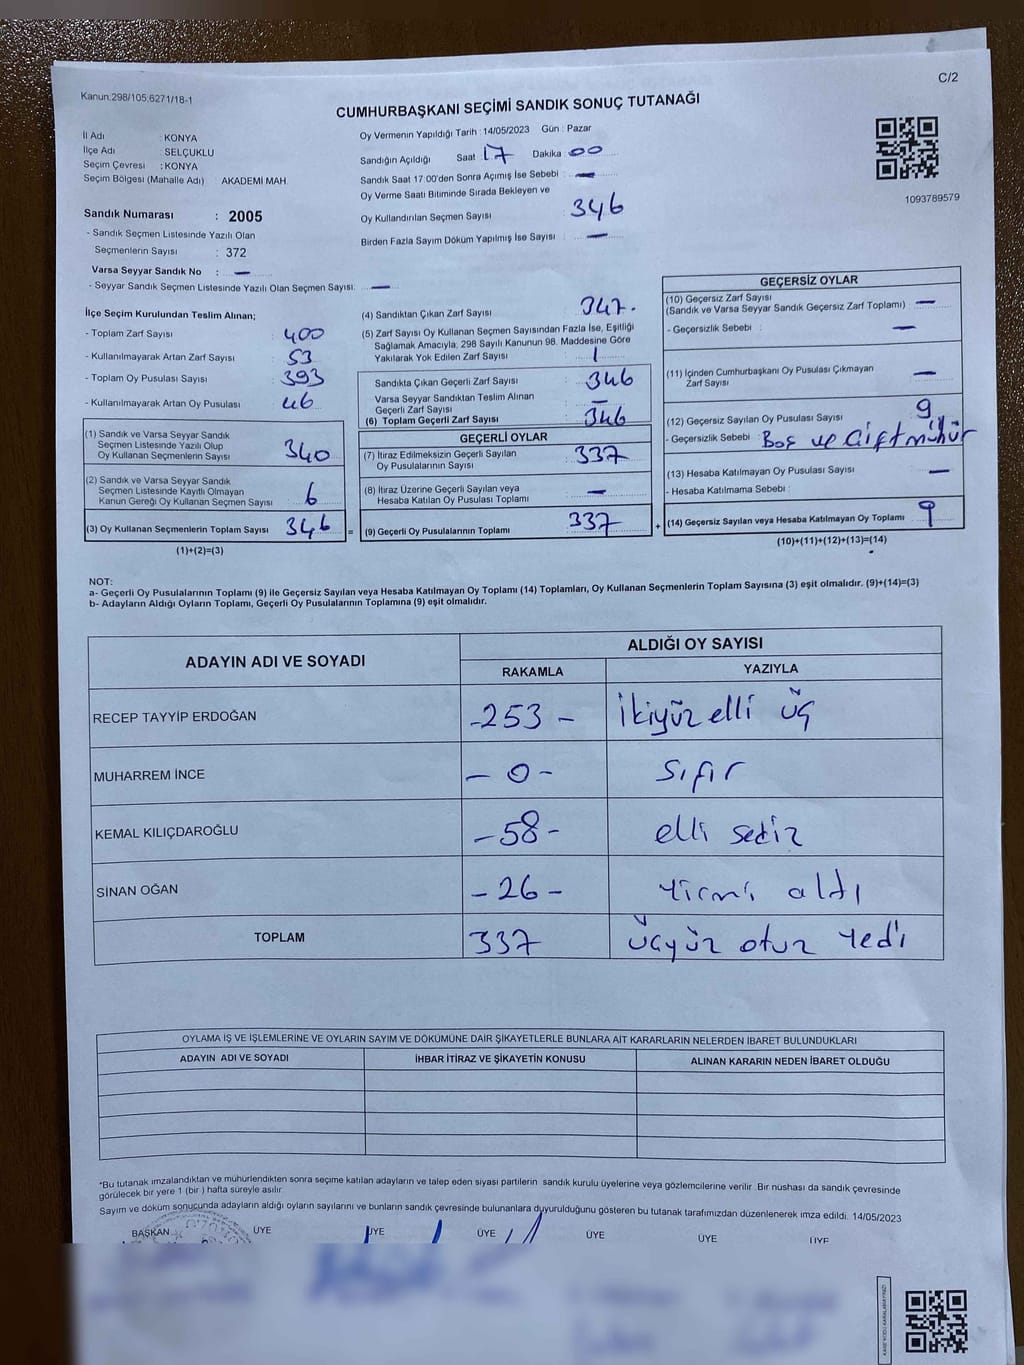 C/2
Kanun:298/105;6271/18-1
CUMHURBAŞKANI SEÇİMİ SANDIK SONUÇ TUTANAĞI
İl Adı : KONYA
İlçe Adı : SELÇUKLU
Seçim Çevresi : KONYA
Seçim Bölgesi (Mahalle Adı) : AKADEMİ MAH.
Sandık Numarası : 2005
- Sandık Seçmen Listesinde Yazılı Olan
Seçmenlerin Sayısı : 372
Varsa Seyyar Sandık No : —
- Seyyar Sandık Seçmen Listesinde Yazılı Olan Seçmen Sayısı: —
Oy Vermenin Yapıldığı Tarih : 14/05/2023 Gün : Pazar
Sandığın Açıldığı Saat 17 Dakika 00
Sandık Saat 17:00'den Sonra Açımış İse Sebebi : —
Oy Verme Saati Bitiminde Sırada Bekleyen ve
Oy Kullandırılan Seçmen Sayısı : 346
Birden Fazla Sayım Döküm Yapılmış İse Sayısı : —
1093789579
İlçe Seçim Kurulundan Teslim Alınan;
- Toplam Zarf Sayısı : 400
- Kullanılmayarak Artan Zarf Sayısı : 53
- Toplam Oy Pusulası Sayısı : 393
- Kullanılmayarak Artan Oy Pusulası : 46
(1) Sandık ve Varsa Seyyar Sandık
Seçmen Listesinde Yazılı Olup
Oy Kullanan Seçmenlerin Sayısı : 340
(2) Sandık ve Varsa Seyyar Sandık
Seçmen Listesinde Kayıtlı Olmayan
Kanun Gereği Oy Kullanan Seçmen Sayısı : 6
(3) Oy Kullanan Seçmenlerin Toplam Sayısı : 346 =
(1)+(2)=(3)
(4) Sandıktan Çıkan Zarf Sayısı : 347.
(5) Zarf Sayısı Oy Kullanan Seçmen Sayısından Fazla İse, Eşitliği
Sağlamak Amacıyla; 298 Sayılı Kanunun 98. Maddesine Göre
Yakılarak Yok Edilen Zarf Sayısı : 1
Sandıkta Çıkan Geçerli Zarf Sayısı : 346
Varsa Seyyar Sandıktan Teslim Alınan
Geçerli Zarf Sayısı : —
(6) Toplam Geçerli Zarf Sayısı : 346
GEÇERLİ OYLAR
(7) İtiraz Edilmeksizin Geçerli Sayılan
Oy Pusulalarının Sayısı : 337
(8) İtiraz Üzerine Geçerli Sayılan veya
Hesaba Katılan Oy Pusulası Toplamı : —
(9) Geçerli Oy Pusulalarının Toplamı : 337 +
GEÇERSİZ OYLAR
(10) Geçersiz Zarf Sayısı
(Sandık ve Varsa Seyyar Sandık Geçersiz Zarf Toplamı) : —
- Geçersizlik Sebebi : —
(11) İçinden Cumhurbaşkanı Oy Pusulası Çıkmayan
Zarf Sayısı : —
(12) Geçersiz Sayılan Oy Pusulası Sayısı : 9
- Geçersizlik Sebebi : Boş ve Çift mühür
(13) Hesaba Katılmayan Oy Pusulası Sayısı : —
- Hesaba Katılmama Sebebi :
(14) Geçersiz Sayılan veya Hesaba Katılmayan Oy Toplamı : 9
(10)+(11)+(12)+(13)=(14)
NOT:
a- Geçerli Oy Pusulalarının Toplamı (9) ile Geçersiz Sayılan veya Hesaba Katılmayan Oy Toplamı (14) Toplamları, Oy Kullanan Seçmenlerin Toplam Sayısına (3) eşit olmalıdır. (9)+(14)=(3)
b- Adayların Aldığı Oyların Toplamı, Geçerli Oy Pusulalarının Toplamına (9) eşit olmalıdır.
ADAYIN ADI VE SOYADI ALDIĞI OY SAYISI
RAKAMLA YAZIYLA
RECEP TAYYİP ERDOĞAN -253- İkiyüz elli üç
MUHARREM İNCE -0- sıfır
KEMAL KILIÇDAROĞLU -58- elli sekiz
SİNAN OĞAN -26- Yirmi altı
TOPLAM 337 Üçyüz otuz Yedi
OYLAMA İŞ VE İŞLEMLERİNE VE OYLARIN SAYIM VE DÖKÜMÜNE DAİR ŞİKAYETLERLE BUNLARA AİT KARARLARIN NELERDEN İBARET BULUNDUKLARI
ADAYIN ADI VE SOYADI İHBAR İTİRAZ VE ŞİKAYETİN KONUSU ALINAN KARARIN NEDEN İBARET OLDUĞU
*Bu tutanak imzalandıktan ve mühürlendikten sonra seçime katılan adayların ve talep eden siyasi partilerin sandık kurulu üyelerine veya gözlemcilerine verilir. Bir nüshası da sandık çevresinde
görülecek bir yere 1 (bir) hafta süreyle asılır.
Sayım ve döküm sonucunda adayların aldığı oyların sayılarını ve bunların sandık çevresinde bulunanlara duyurulduğunu gösteren bu tutanak tarafımızdan düzenlenerek imza edildi. 14/05/2023
BAŞKAN ÜYE ÜYE ÜYE ÜYE ÜYE ÜYE